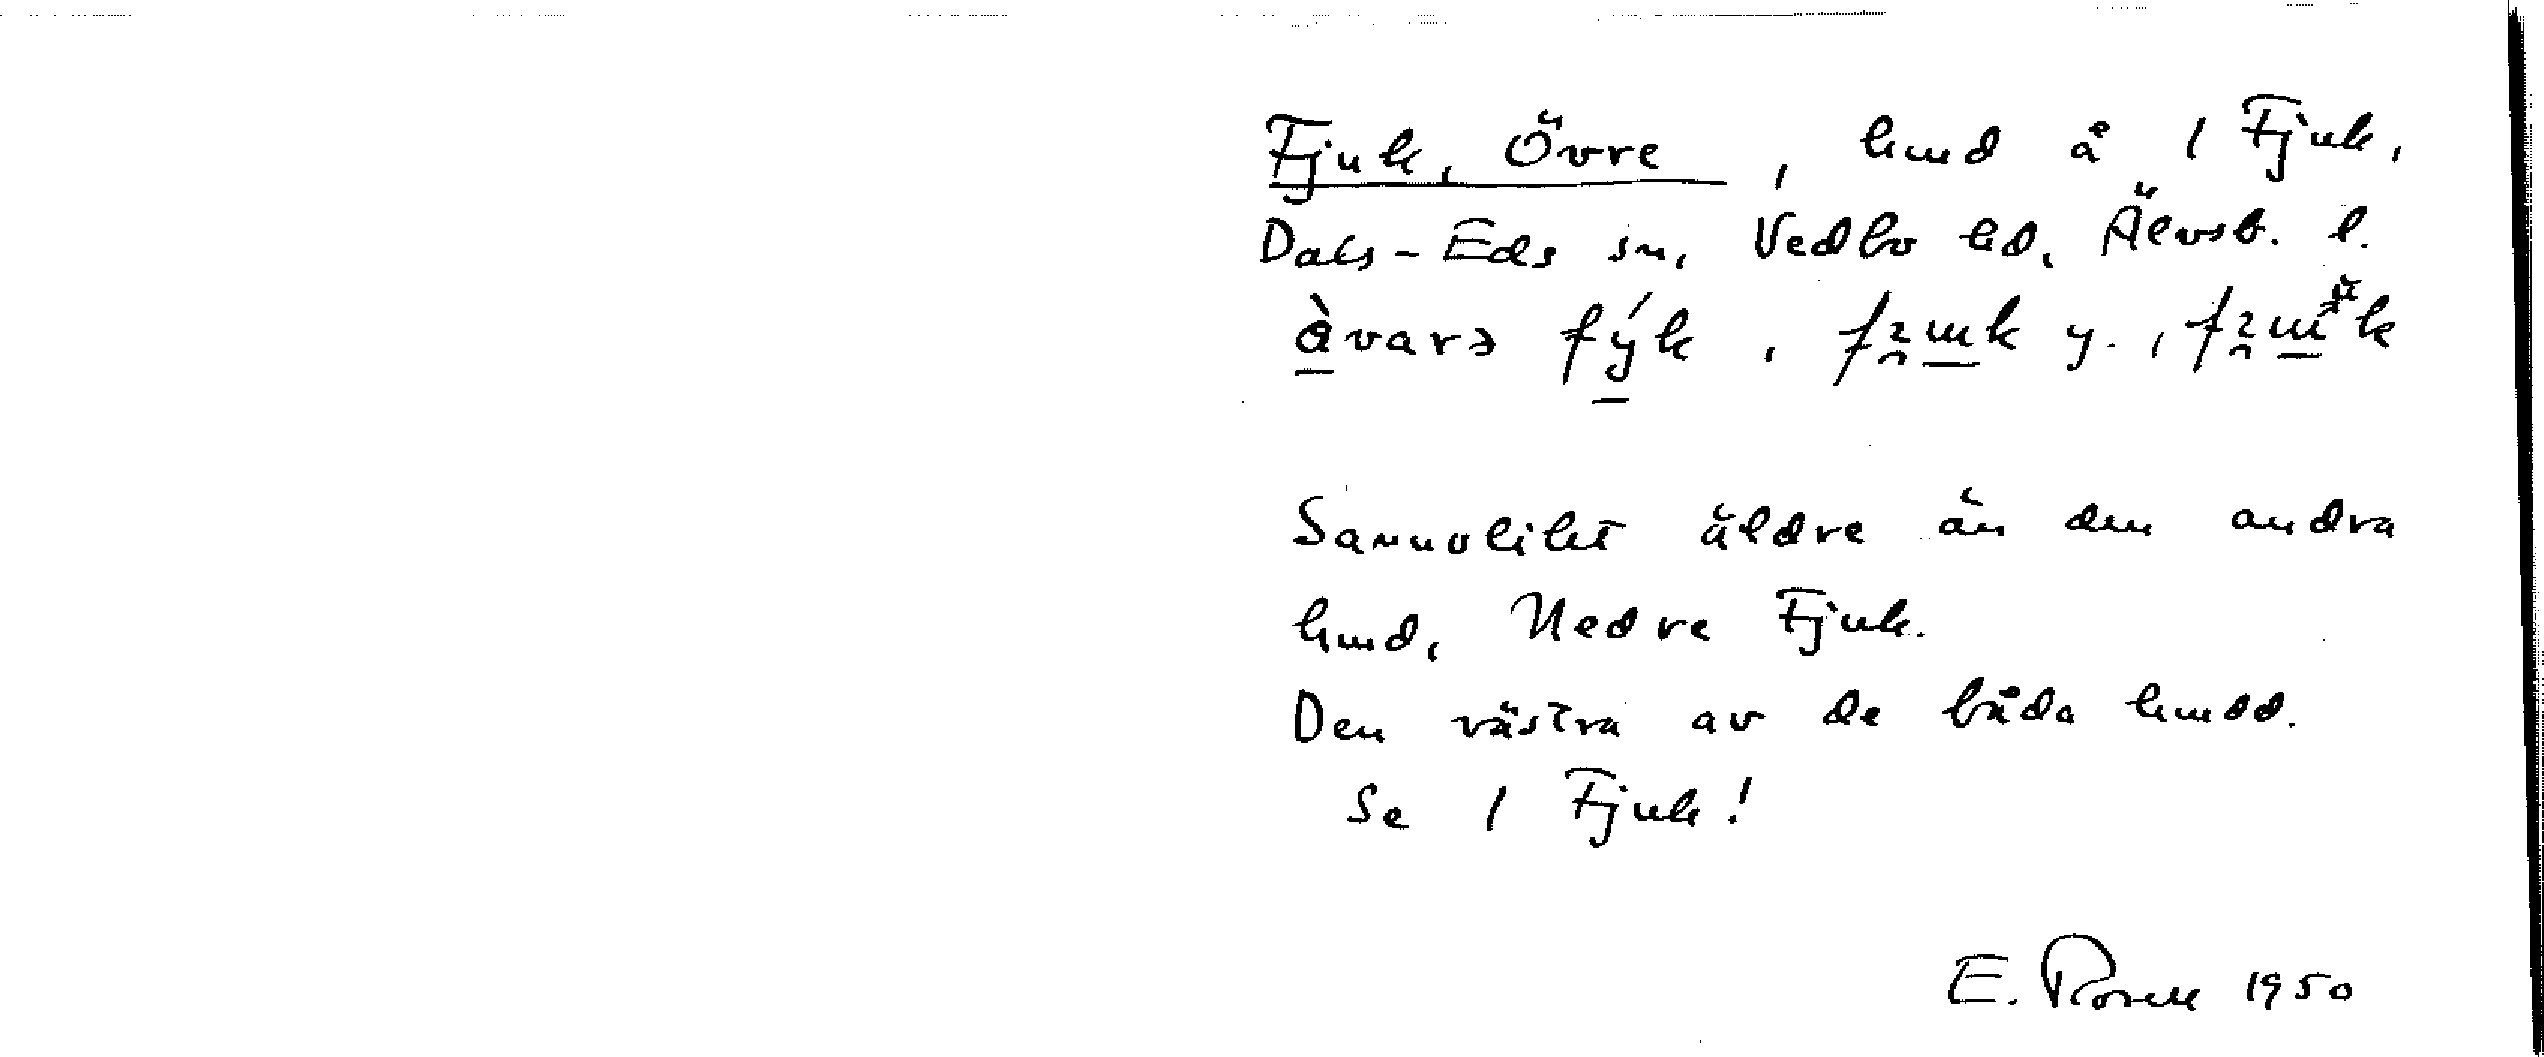 Fjuk, Övre, hmd å 1 Fjuk,
Dals-Eds sn, Vedbo hd, Älvsb. l.
Sannolikt äldre än den andra
hmd, Nedre Fjuk.
Den västra av de båda hmdd.
Se 1 Fjuk!
E. 1950